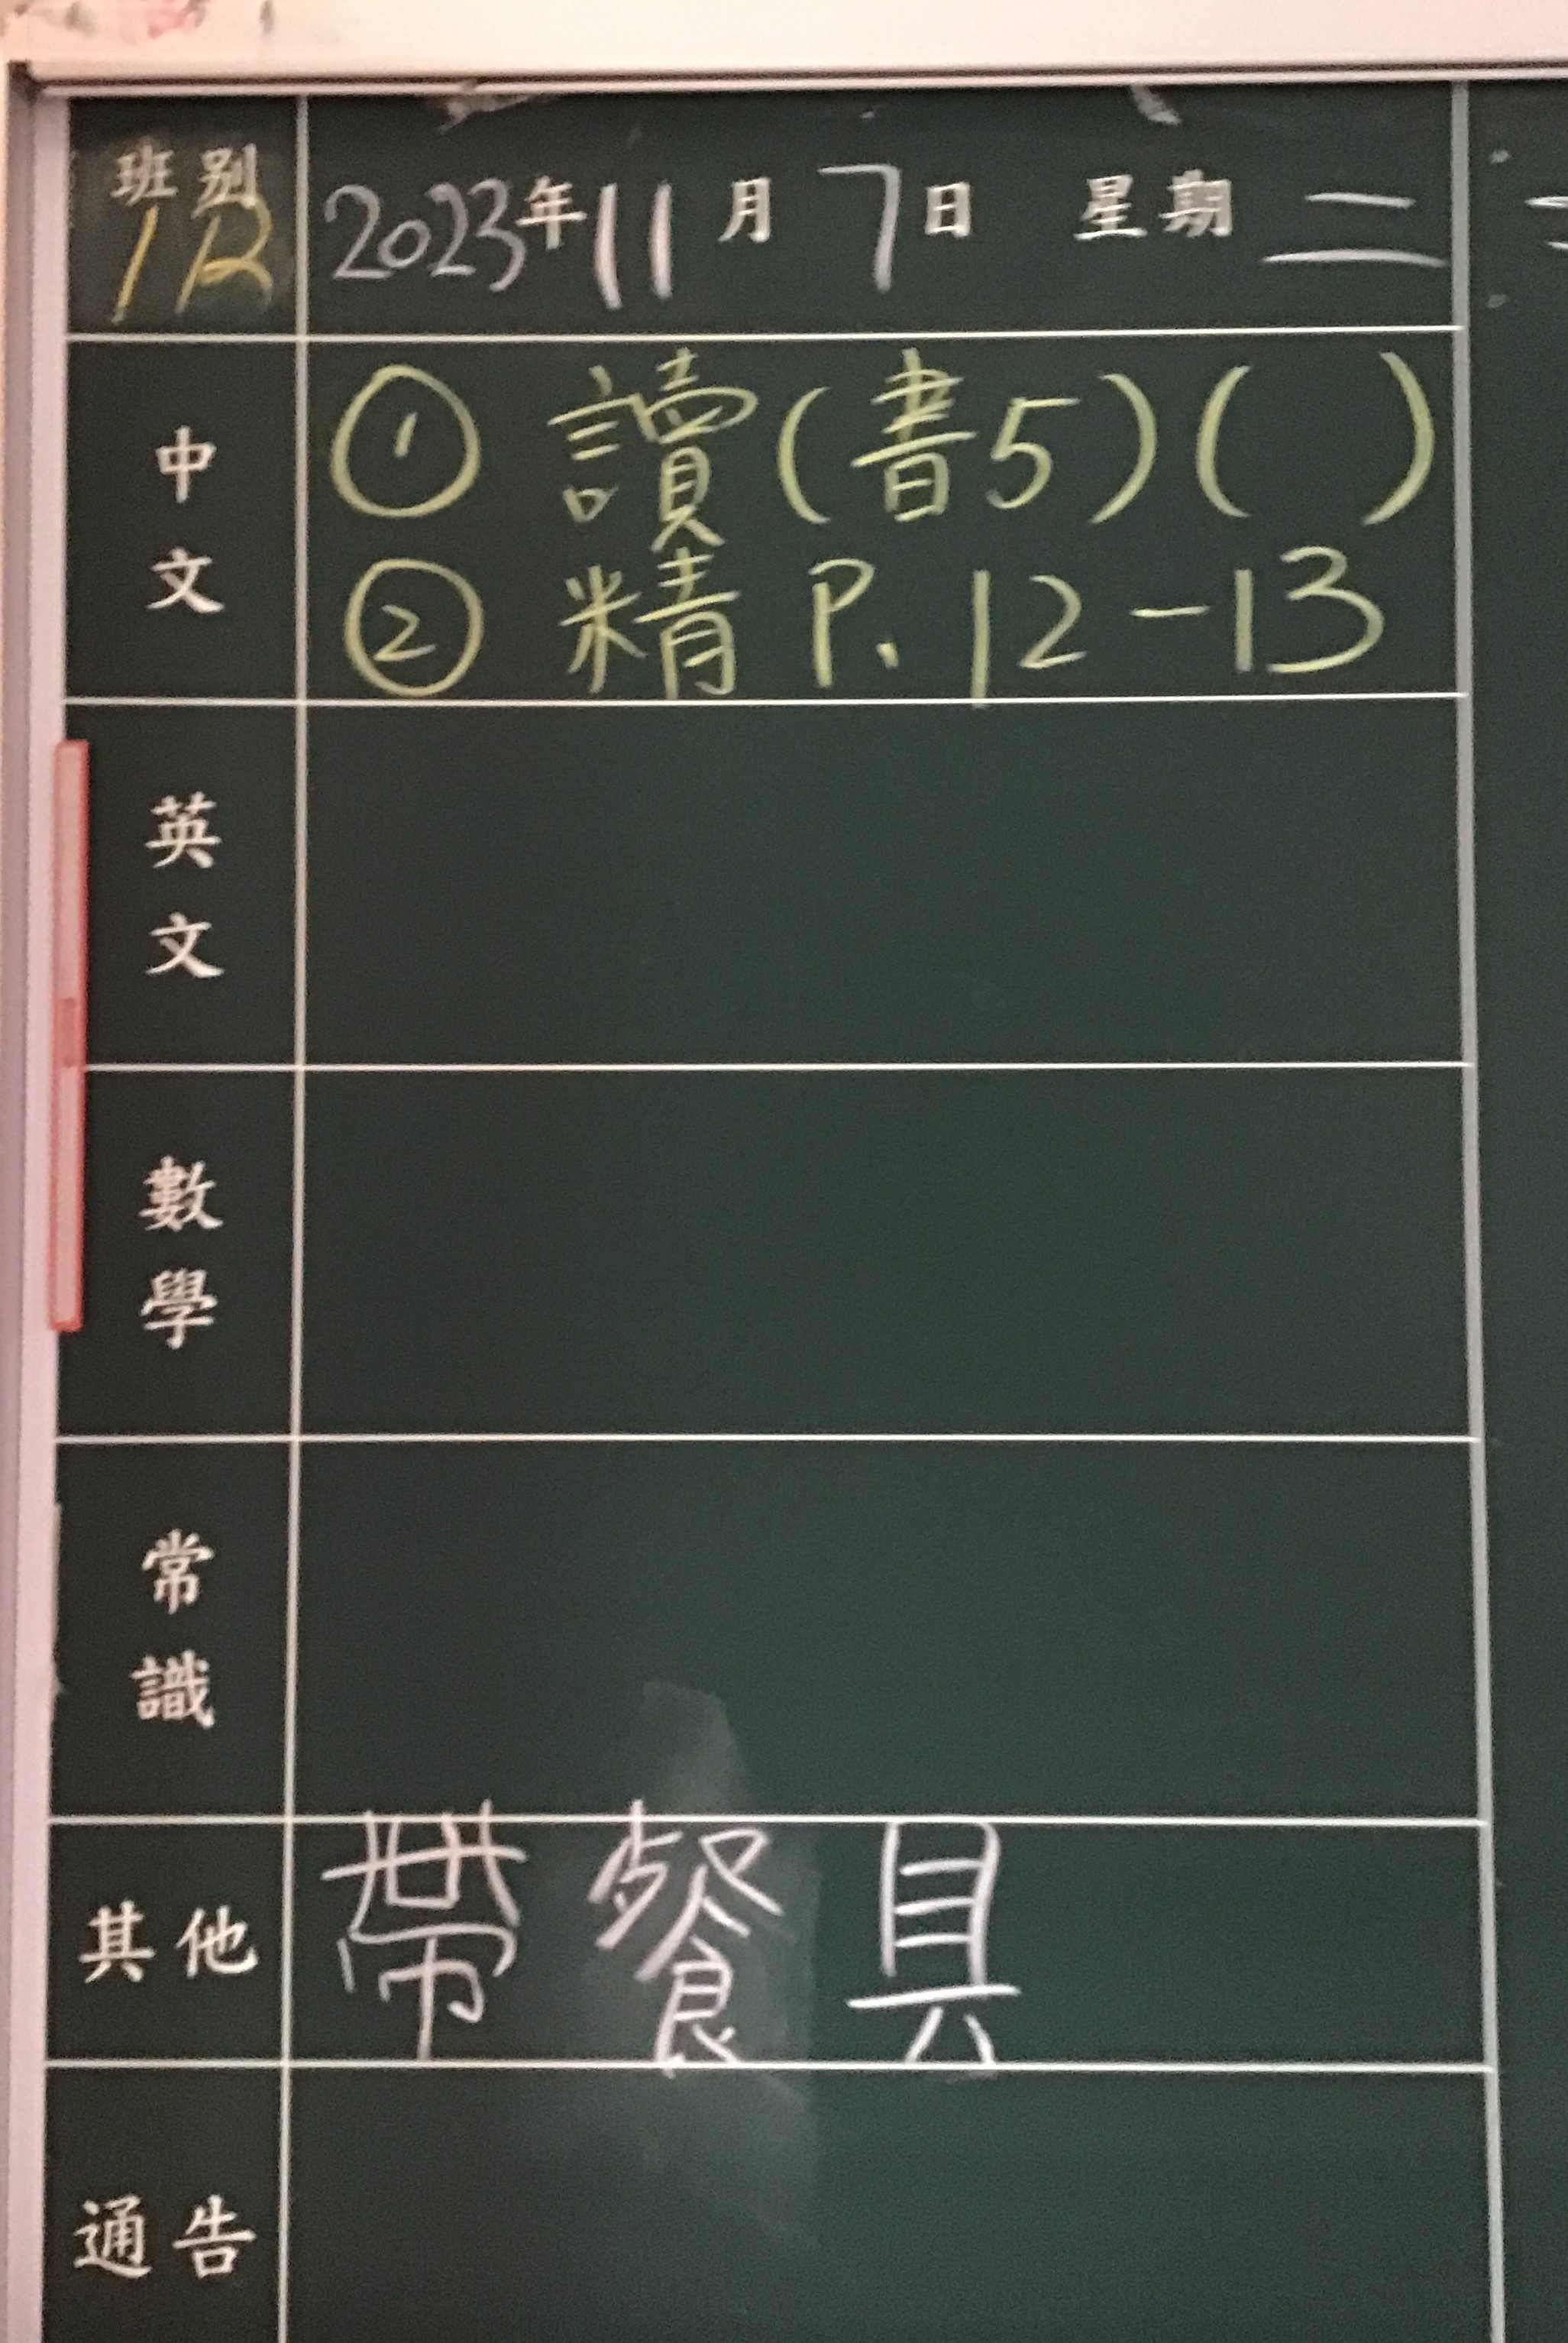 班別
1R
2023年11月7日 星期二
中文
① 讀(書5)( )
② 精 P. 12-13
英文
數學
常識
其他
帶餐具
通告